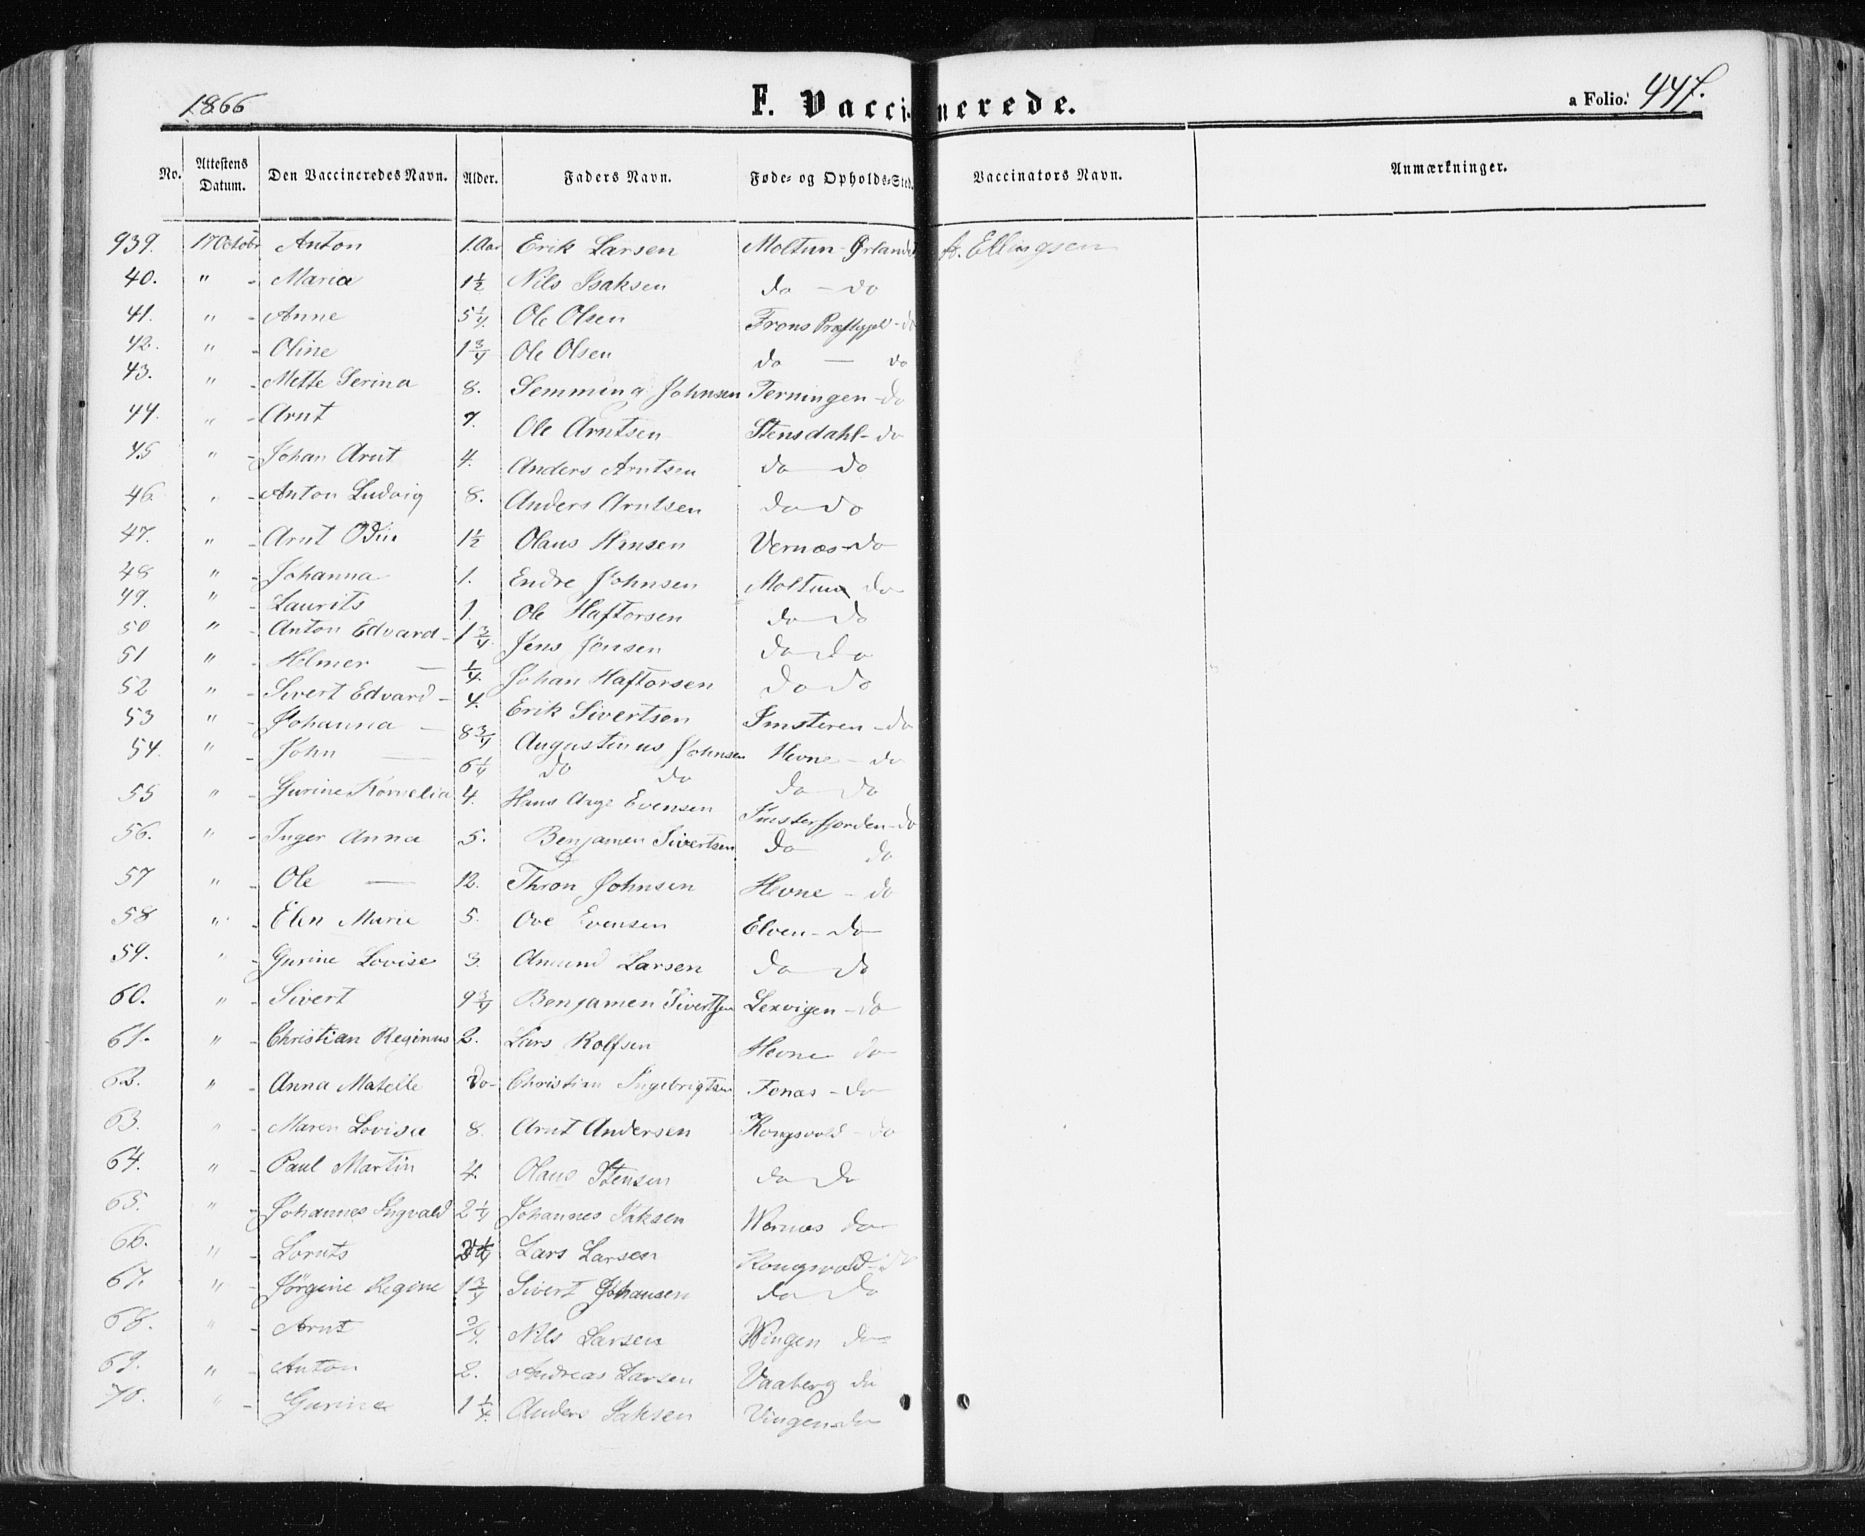 1866 F. Vaccinerede. a Folio. 447.
No. Attestens Datum. Den Vaccineredes Navn. Alder. Faders Navn. Føde- og Opholds-Sted. Vaccinators Navn. Anmærkninger.
939. 17 Octobr Anton 1.Aar Erik Larsen Moltun-Ørlandet A. Ellingsen
40. " - Maria 1 1/2 Nils Isaksen do - do
41. " - Anne 5 1/4 Ole Olsen Frons Præstgjeld - do
42. " - Oline 1 3/4 Ole Olsen do - do
43. " - Mette Serina 8. Semming Johnsen Terningen - do
44. " - Arnt 7. Ole Arntsen Stensdahl - do
45 " - Johan Arnt 4. Anders Arntsen do do
46 " - Anton Ludvig 8. Anders Arntsen do do
47. " - Arnt Odin 1 1/2 Olaus Hansen Vernæs - do
48 " - Johanna 1. Endre Johnsen Moltun do
49. " - Laurits 1. Ole Haftorsen do do
50 " - Anton Edvard - 1 3/4 Jens Jensen do do
51 " - Helmer — 1/4 Johan Haftorsen do do
52 " - Sivert Edvard - 4. Erik Sivertsen Imsteren - do
53 " - Johanna — 8 3/4 Augustinus Johnsen Hevne - do
54. " - John — 6 1/4 do do do do
55 " - Gurine Kornelia 4. Hans Aage Evensen Imsterfjorden - do
56. " - Inger Anna 5. Benjamen Sivertsen do do
57 " - Ole — 12. Thron Johnsen Hevne - do
58 " - Elen Marie 5. Ove Evensen Elven - do
59. " - Gurine Lovise 3. Amund Larsen do do
60. " - Sivert 9 3/4 Benjamen Sivertsen Lexvigen - do
61. " - Christian Reginus 2. Lars Rolfsen Hevne do
62. " - Anna Matelle do - Christian Ingebrigtsen Fenas - do
63. " - Maren Lovise 8. Arnt Andersen Kongsvold - do
64. " - Paul Martin 4. Olaus Stensen do do
65. " - Johannes Ingvald 2 1/4 Johannes Isaksen Wernæs do
66. " - Lornts Lars Larsen Kongsvold - do
67. " - Jørgine Regine 1 3/4 Sivert Johansen do do
68. " - Arnt 3/4. Nils Larsen Wingen do
69. " - Anton 2. Andreas Larsen Vaaberg do
70. " - Gurine 1 1/4. Anders Isaksen Vingen do